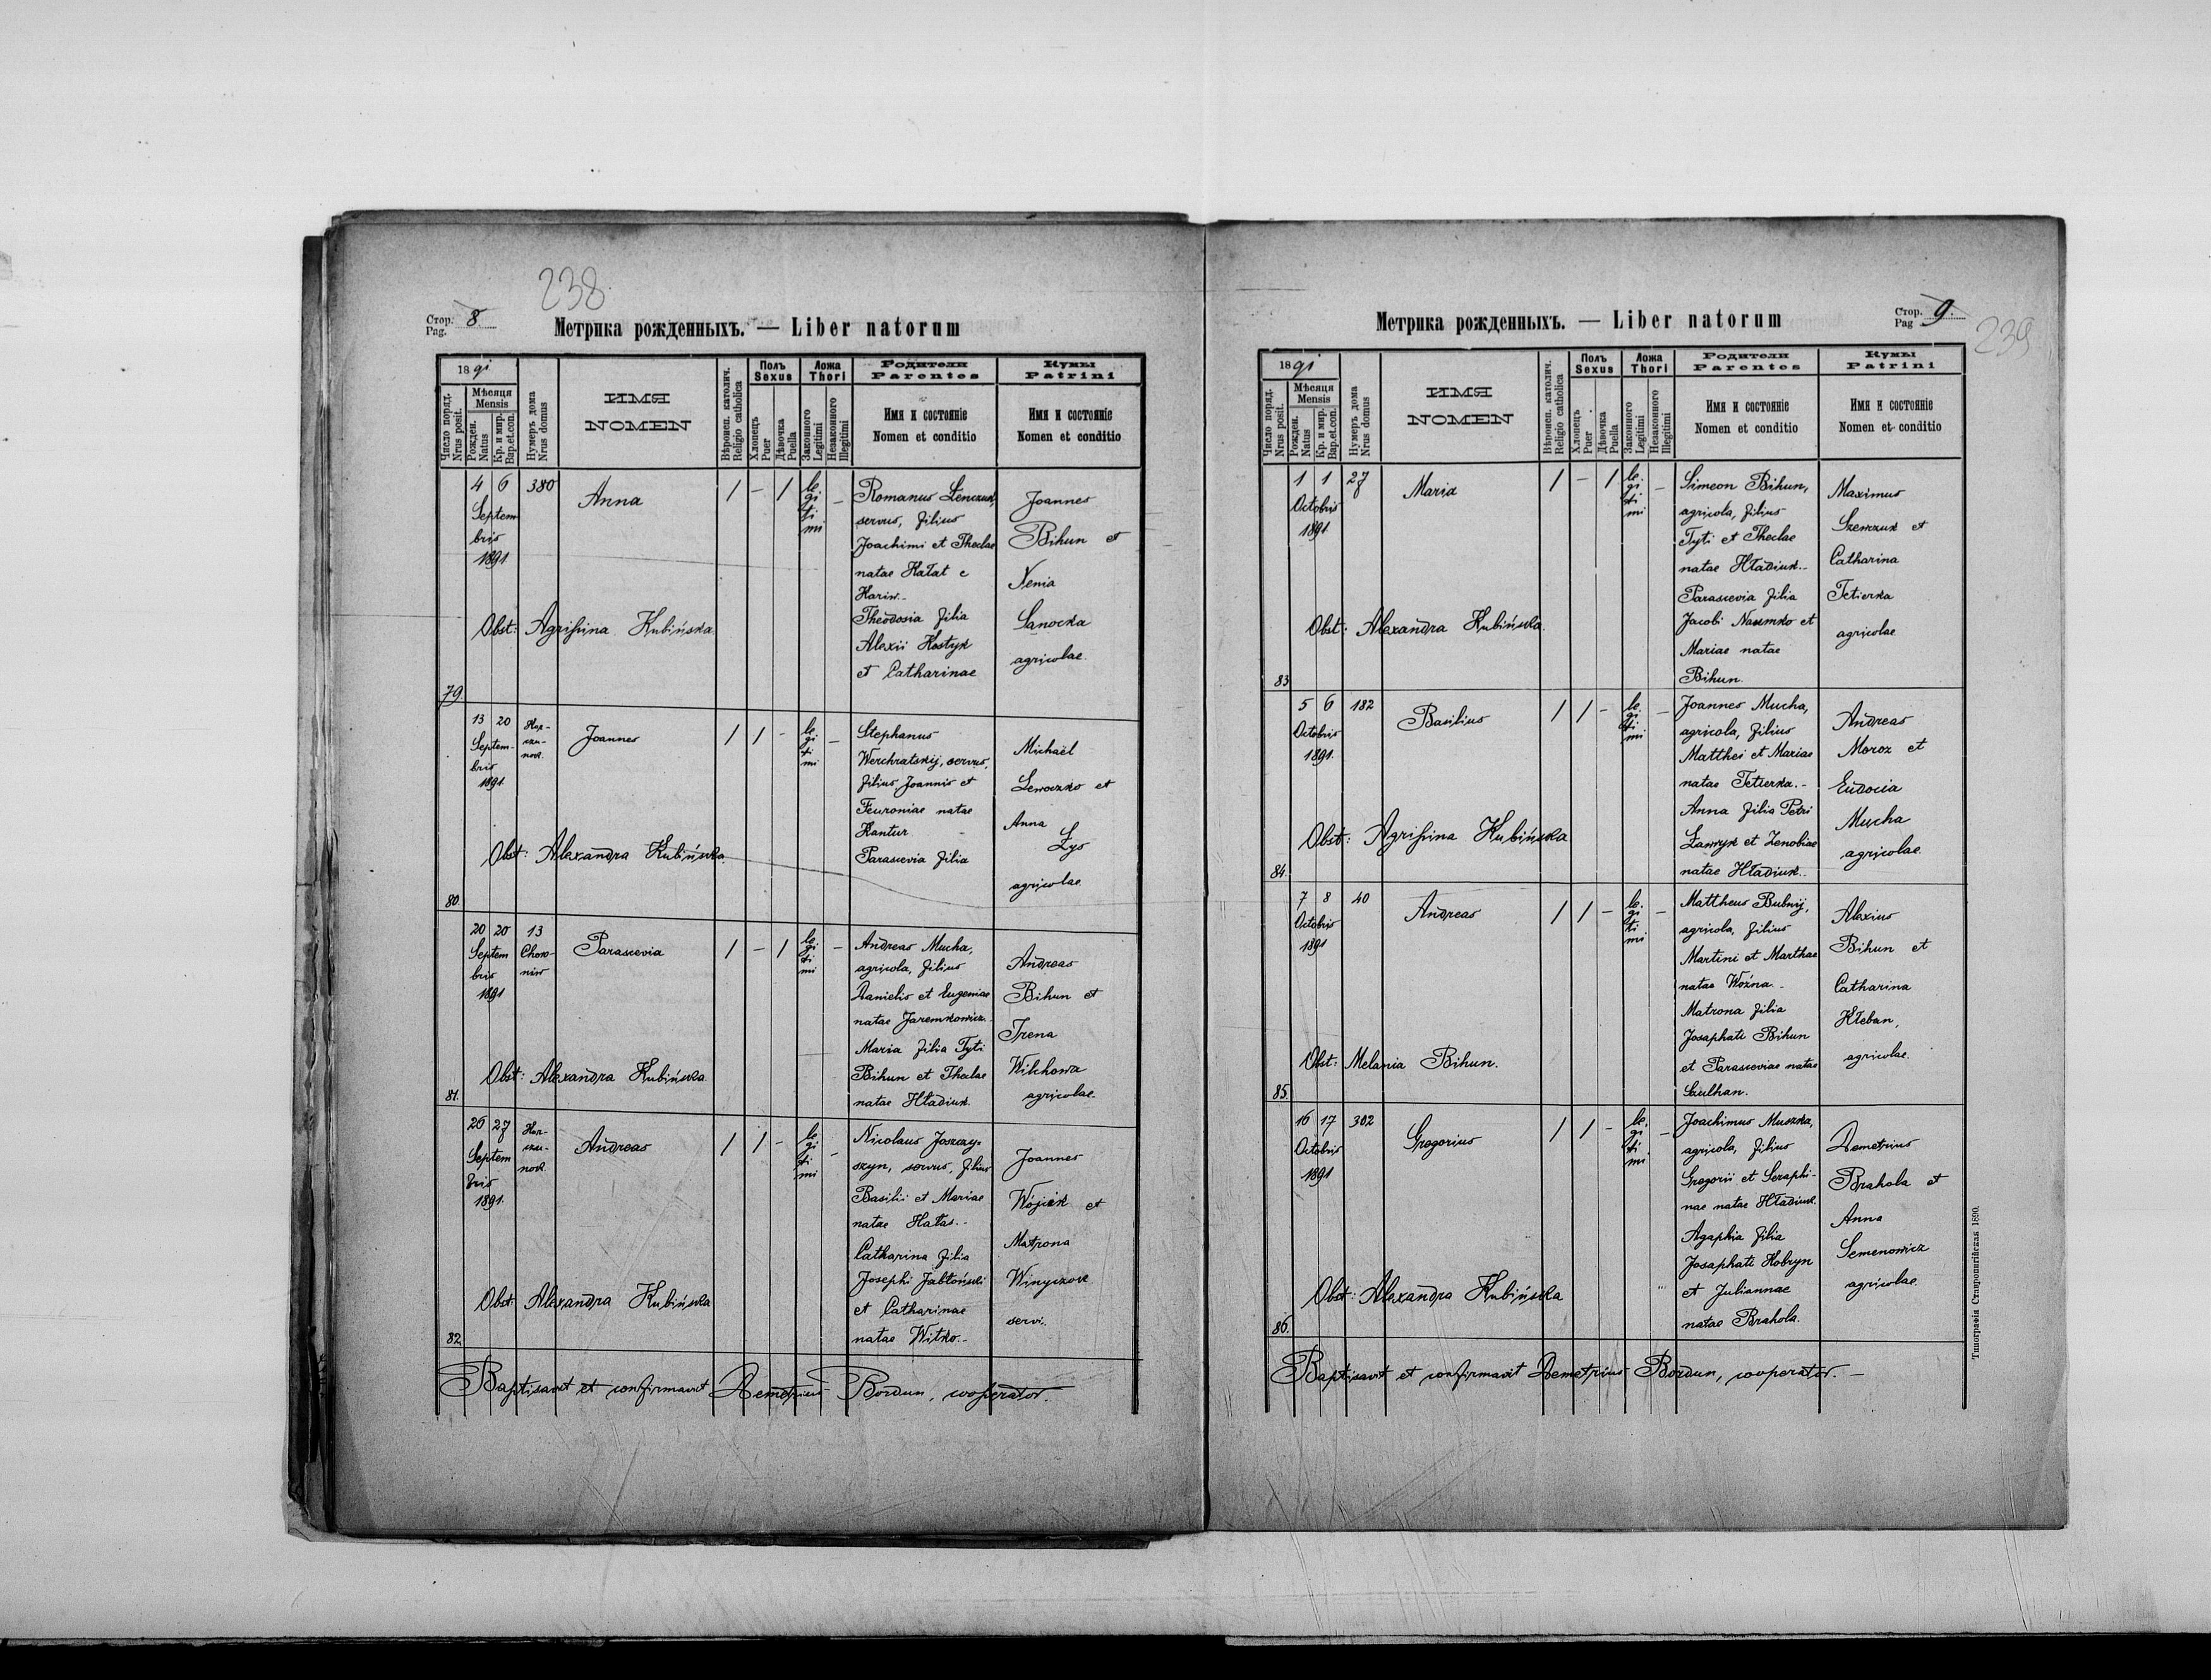 238
Стор. 8.
Pag.
Метрика рожденныхъ. — Liber natorum
1891
Число поряд.
Nrus posit.
Мѣсяця
Mensis
Рожден.
Natus
Кр. и мир.
Bap.et.con.
Нумеръ дома
Nrus domus
ИМЯ
NOMEN
Вѣроисп. католич.
Religio catholica
Полъ
Sexus
Хлопецъ
Puer
Дѣвочка
Puella
Ложа
Thori
Законного
Legitimi
Незаконного
Illegitimi
Родители
Parentes
Имя и состояніе
Nomen et conditio
Кумы
Patrini
Имя и состояніе
Nomen et conditio
79.
4 6
Septem
bris
1891
380
Anna
1 – 1
le
gi
ti
mi
–
Romanus Lenczuk,
servus, filius
Joachimi et Theclae
natae Hałat e
Hariw.-
Theodosia filia
Alexii Kostyk
et Catharinae
Joannes
Bihun et
Xenia
Sanocka
agricolae.
Obst: Agrippina Kubińska.
80.
13 20
Septem-
bris
1891
Joannes
1 1 -
le
gi
ti
mi
–
Stephanus
Werchratskij, servus,
filius Joannis et
Feuroniae natae
Kantur.
Parascevia filia
Michaël
Lewoczko et
Anna
Łys
agricolae.
Obst: Alexandra Kubińska
81.
20 20
Septem
bris
1891
13
Choro-
niw
Parascevia
1 – 1
le
gi
ti
mi
–
Andreas Mucha,
agricola, filius
Danielis et Eugeniae
natae Jaremkowicz.
Maria filia Tyti
Bihun et Theclae
natae Hładiuk.
Andreas
Bihun et
Irena
Wilchowa
agricolae.
Obst: Alexandra Kubińska.
82.
26 27
Septem
bris
1891.
Andreas
1 1 -
le
gi
ti
mi
–
Nicolaus Joszczy-
szyn, servus, filius
Basilii et Mariae
natae Hałas.-
Catharina filia
Josephi Jabłoński
et Catharinae
natae Witko.-
Joannes
Wójcik et
Matrona
Winyczok
servi.
Obst: Alexandra Kubińska
Baptisavit et confirmavit Demetrius Bordun, cooperator.
Стор. 9.
Pag
239
Метрика рожденныхъ. — Liber natorum
1891
Число поряд.
Nrus posit.
Мѣсяця
Mensis
Рожден.
Natus
Кр. и мир.
Bap.et.con.
Нумеръ дома
Nrus domus
ИМЯ
NOMEN
Вѣроисп. католич.
Religio catholica
Полъ
Sexus
Хлопецъ
Puer
Дѣвочка
Puella
Ложа
Thori
Законного
Legitimi
Незаконного
Illegitimi
Родители
Parentes
Имя и состояніе
Nomen et conditio
Кумы
Patrini
Имя и состояніе
Nomen et conditio
83
1 1
Octobris
1891
27
Maria
1 – 1
le
gi
ti
mi
–
Simeon Bihun,
agricola, filius
Tyti et Theclae
natae Hładiuk.-
Parascevia filia
Jacobi Naumko et
Mariae natae
Bihun.
Maximus
Szewczuk et
Catharina
Tetierka
agricolae
Obst: Alexandra Kubińska.
84.
5 6
Octobris
1891.
182
Basilius
1 1 –
le
gi
ti
mi
–
Joannes Mucha,
agricola, filius
Matthei et Mariae
natae Tetierka.-
Anna filia Petri
Ławryk et Zenobiae
natae Hładiuk.-
Andreas
Moroz et
Eudocia
Mucha
agricolae.
Obst: Agrippina Kubińska
85.
7 8
Octobris
1891
40
Andreas
1 1 –
le
gi
ti
mi
–
Mattheus Bubnij,
agricola, filius
Martini et Marthae
natae Woźna.-
Matrona filia
Josaphati Bihun
et Parasceviae natae
Szulhan.
Alexius
Bihun et
Catharina
Kłeban,
agricolae.
Obst: Melania Bihun.
86.
16 17
Octobris
1891
302
Gregorius
1 1 –
le
gi
ti
mi
–
Joachimus Muszka,
agricola, filius
Gregorii et Seraphi-
nae natae Hładiuk.
Agaphia filia
Josaphati Kobryn
et Juliannae
natae Brahola.
Demetrius
Brahola et
Anna
Semenowicz
agricolae.
Obst: Alexandra Kubińska
Baptisavit et confirmavit Demetrius Bordun, cooperator. –
Типографія Ставропигійская 1890.